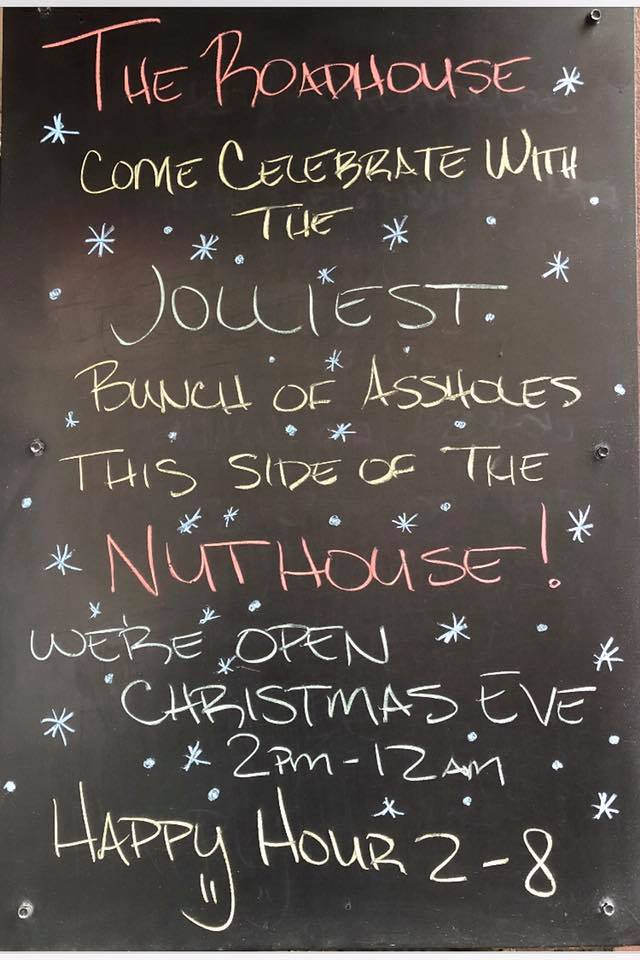 THE ROADHOUSE
COME CELEBRATE WITH
THE
JOLLIEST
BUNCH OF ASSHOLES
THIS SIDE OF THE
NUTHOUSE!
WE'RE OPEN
CHRISTMAS EVE
2PM-12AM
HAPPY HOUR 2-8